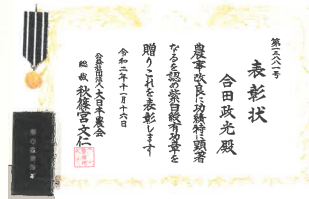 第一三八八一号
表彰状
合田政光殿
農事改良に功績特に顕著
なるを認め紫白綬有功章を
贈りこれを表彰します
令和二年十一月十六日
公益社団法人大日本農会
総裁 秋篠宮文仁